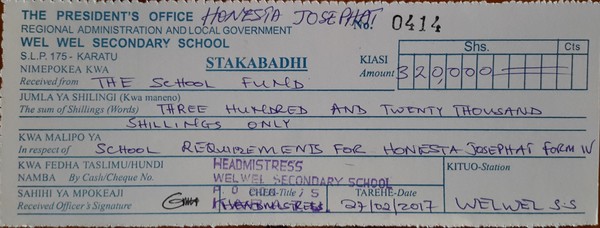 THE PRESIDENT'S OFFICE HONESTA JOSEPHAT
REGIONAL ADMINISTRATION AND LOCAL GOVERNMENT No. 0414
WEL WEL SECONDARY SCHOOL
S.L.P. 175 - KARATU STAKABADHI KIASI Shs. Cts
NIMEPOKEA KWA Amount 320,000
Received from THE SCHOOL FUND
JUMLA YA SHILINGI (Kwa maneno)
The sum of Shillings (Words) THREE HUNDRED AND TWENTY THOUSAND
SHILLINGS ONLY
KWA MALIPO YA
In respect of SCHOOL REQUIREMENTS FOR HONESTA JOSEPHAT FORM IV
KWA FEDHA TASLIMU/HUNDI HEADMISTRESS KITUO-Station
NAMBA By Cash/Cheque No. WELWEL SECONDARY SCHOOL
SAHIHI YA MPOKEAJI CHEO-Title TAREHE-Date
Received Officer's Signature 27/02/2017 WELWEL S.S